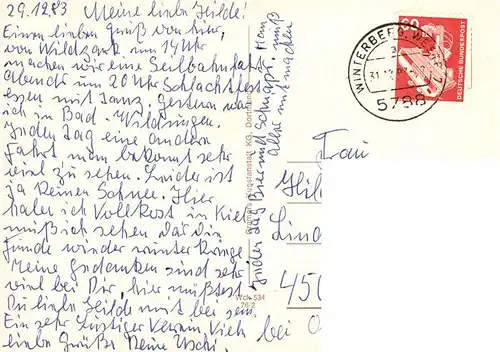 29.12.83 Meine liebe Hilde!
Einen lieben Gruß von hier,
von Wildpark um 14 Uhr
machen wir eine Seilbahnfahrt
Abends um 20 Uhr Schlachtfest
essen mit Tanz. Gestern war
ich in Bad-Wildungen.
Jeden Tag eine andere
Fahrt man bekommt sehr
viel zu sehen. Leider ist
ja keinen Schnee. Hier
habe ich Vollkost in Kiel
muß ich sehen daß die
Pfunde wieder runter kriege
Meine Gedanken sind sehr
viel bei Dir, hier müßtest
Du liebe Hilde mit bei sein.
Ein sehr lustiger Verein. Viele
liebe Grüße Deine Uschi.
jeden Tag Bier und Schnaps. Man muß
alles mitmachen
Kunstanstalt KG, Dortmund
Wck 534
76-2
WINTERBERG, WESTF
31.12.83
5788
80
DEUTSCHE BUNDESPOST
Frau
Hil
Lind
450
bei O